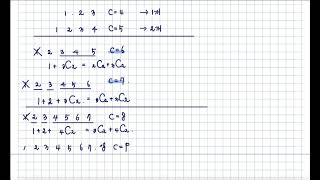 1 . 2 3 C=4 → 1개
1 2 3 4 C=5 → 2개
X 2 3 4 5 C=6
1 + ₃C₂ = ₂C₂+₃C₂
X 2 3 4 5 6 C=7
1+2+₃C₂ = ₃C₂+₃C₂
X 2 3 4 5 6 7 C=8
1+2+ ₄C₂ = ₃C₂+₄C₂
1 2 3 4 5 6 7 8 C=9